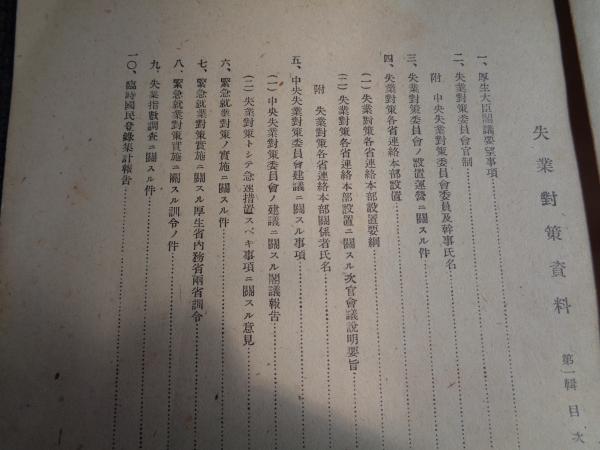 失業對策資料 第一輯 目次
一、厚生大臣閣議要望事項
二、失業對策委員會官制
附 中央失業對策委員會委員及幹事氏名
三、失業對策委員會ノ設置運營ニ關スル件
四、失業對策各省連絡本部設置
(一)失業對策各省連絡本部設置要綱
(二)失業對策各省連絡本部設置ニ關スル次官會議說明要旨
附 失業對策各省連絡本部關係者氏名
五、中央失業對策委員會建議ニ關スル事項
(一)中央失業對策委員會ノ建議ニ關スル閣議報告
(二)失業對策トシテ急速措置スベキ事項ニ關スル意見
六、緊急就業對策ノ實施ニ關スル件
七、緊急就業對策實施ニ關スル厚生省內務省兩省訓令
八、緊急就業對策實施ニ關スル訓令ノ件
九、失業指數調查ニ關スル件
一〇、臨時國民登錄集計報告